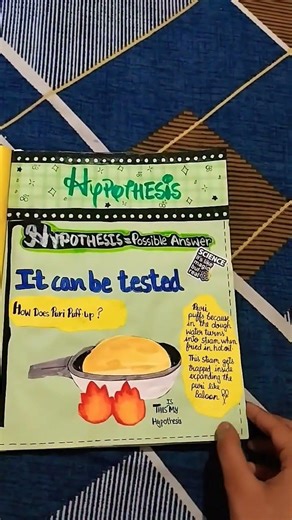 HYPOTHESIS
HYPOTHESIS = Possible Answer
SCIENCE
It can be tested
How Does Puri Puff-up ?
Puri
puffs because
in the dough
water turns
into steam when
fried in hot oil
This steam gets
trapped inside
expanding the
puri like
Balloon
This IS My
Hypothesis